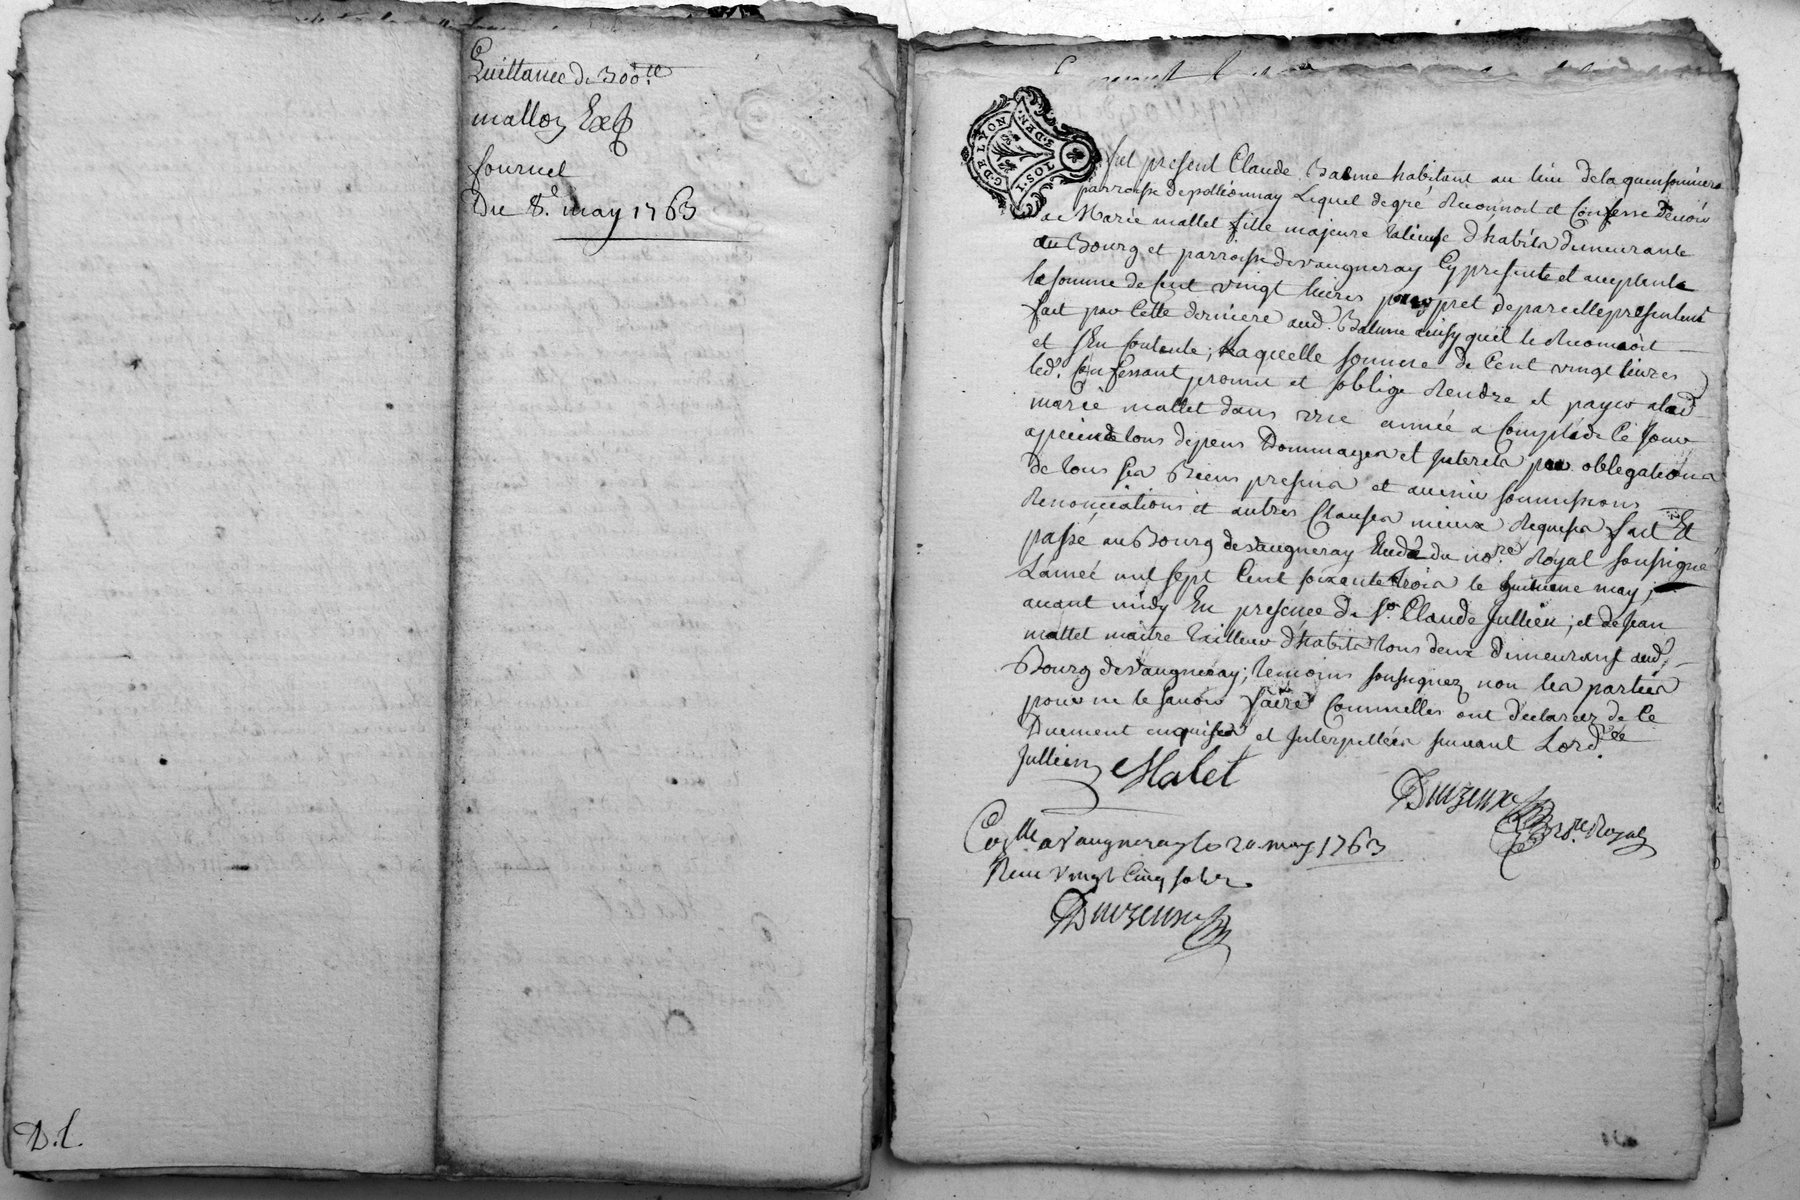 Quittance de 300.ll
malloz Exp
fournel
Du 8.e may 1763
D.l.
G. DE LYON
2. S. DEN.
1. SOL
fut present Claude Balme habitant au lieu delaquensonniere
parroisse depollionnay Lequel degré Reconnoit et Confesse devoir
a Marie mallet fille majeure tailleuse d'habits demeurante
au Bourg et parroisse devaugneray Cy presente et acceptante
la somme de cent vingt livres pour pret depareille presentement
fait par Cette derniere aud. Balme ainsy quil le Reconnoit
et s'En Contente; Laquelle somme de Cent vingt livres
led. Confessant promet et s'oblige Rendre et payer alad
marie mallet dans une année a Compter de Ce Jour
apeinede tous depens Dommages et Interets par obligations
de tous ses Biens presens et avenir soumissions
Renonciations et autres Clauses mieux Requises fait Et
passé au Bourg devaugneray Etude du no.re Royal soussigné
L'année mil sept Cent soixante trois le huitieme may;
avant midy En presence de s.r Claude Jullien; et de Jean
mallet maitre tailleur d'habits tous deux demeurans aud.
Bourg devaugneray; temoins soussignez non les parties
pour ne le savoir faire Commelles ont declarez de Ce
Duement enquises et Interpellées suivant Lord.ce
Jullien Malet
Duvzeux
No.re Royal
Con.lle a Vaugneray le 20 may 1763
Reçu vingt Cinq sols